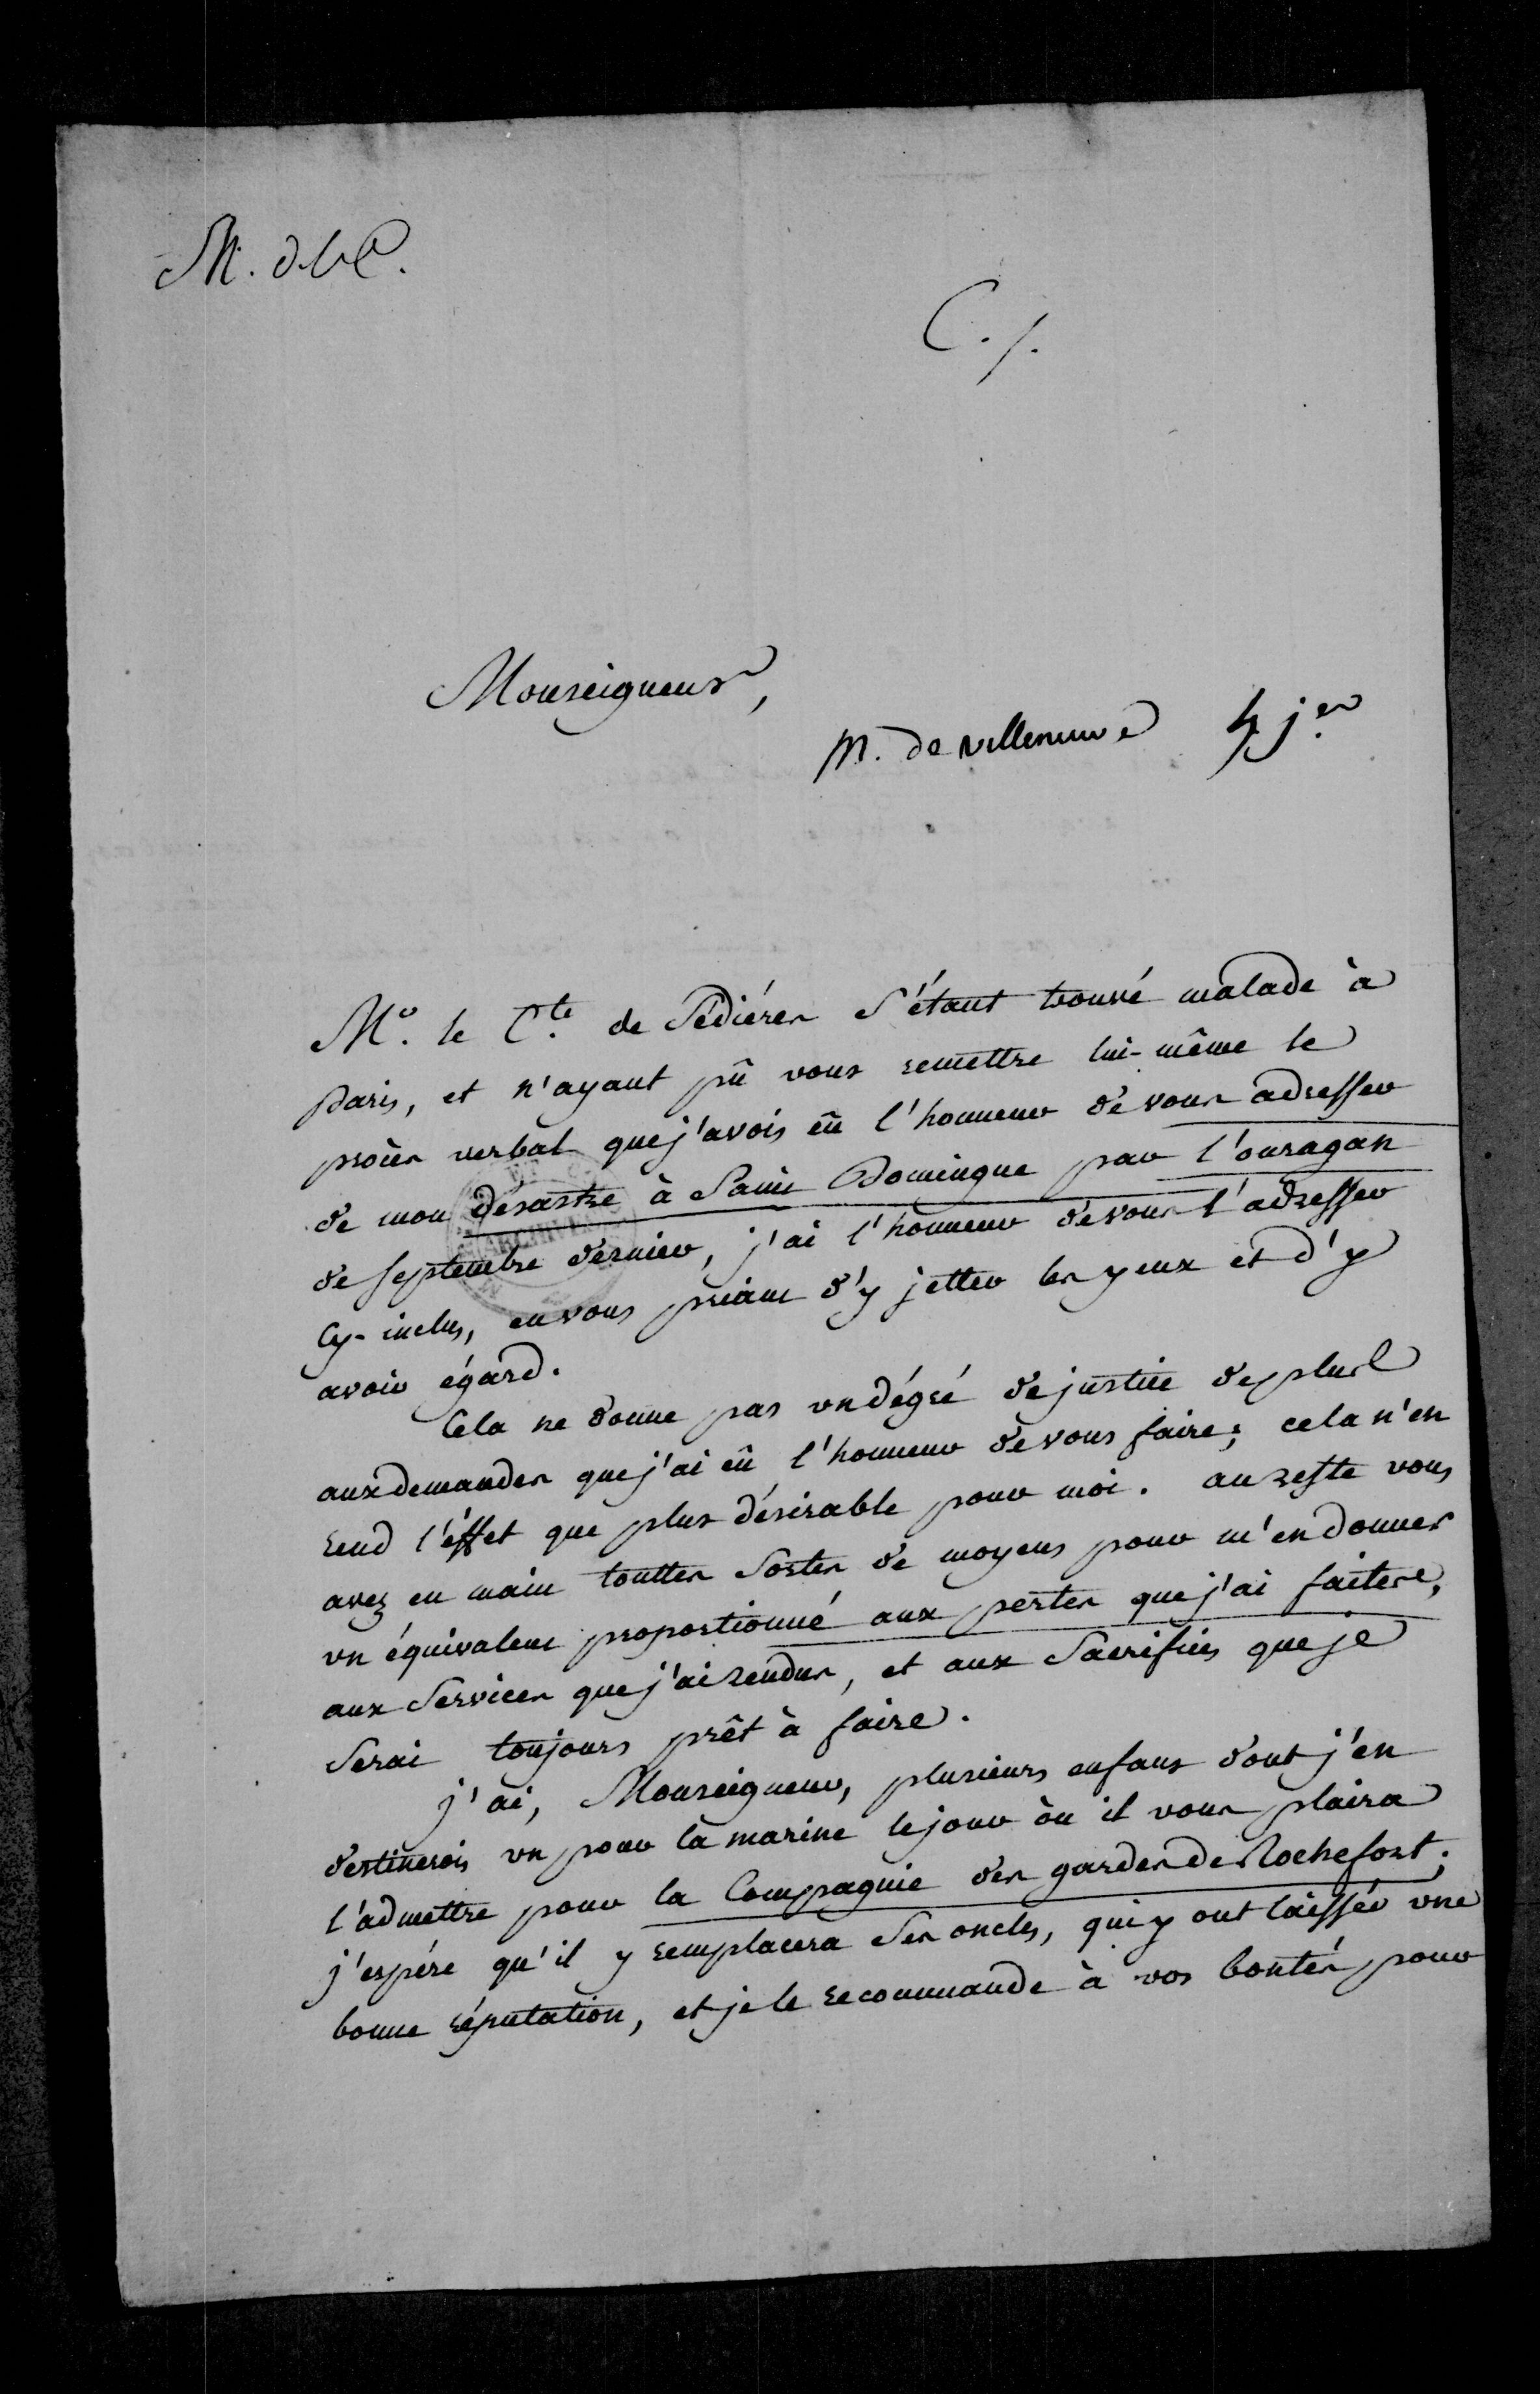 M.
C. /.
Monseigneur,
M. de villeneuve 4 j.er
Mr. le Cte. de Sédières s'étant trouvé malade à
paris, et n'ayant pû vous remettre lui-même le
procès verbal que j'avois eû l'honneur de vous adresser
de mon désastre à Saint Domingue par l'ouragan
de septembre dernier, j'ai l'honneur de vous l'adresser
cy-inclus, en vous priant d'y jetter les yeux et d'y
avoir égard.
Cela ne donne pas un dégré de justice de plus
aux demandes que j'ai eû l'honneur de vous faire; cela n'en
rend l'éffet que plus désirable pour moi. au reste vous
avez en main touttes sortes de moyens pour m'en donner
un équivalent proportionné aux pertes que j'ai faites,
aux services que j'ai rendus, et aux sacrifices que je
serai toujours prêt à faire.
j'ai, Monseigneur, plusieurs enfans dont j'en
destinerois un pour la marine le jour où il vous plaira
l'admettre pour la Compagnie des gardes de Rochefort;
j'espére qu'il y remplacera ses oncles, qui y ont laissée une
bonne réputation, et je le recommande à vos bontés pour